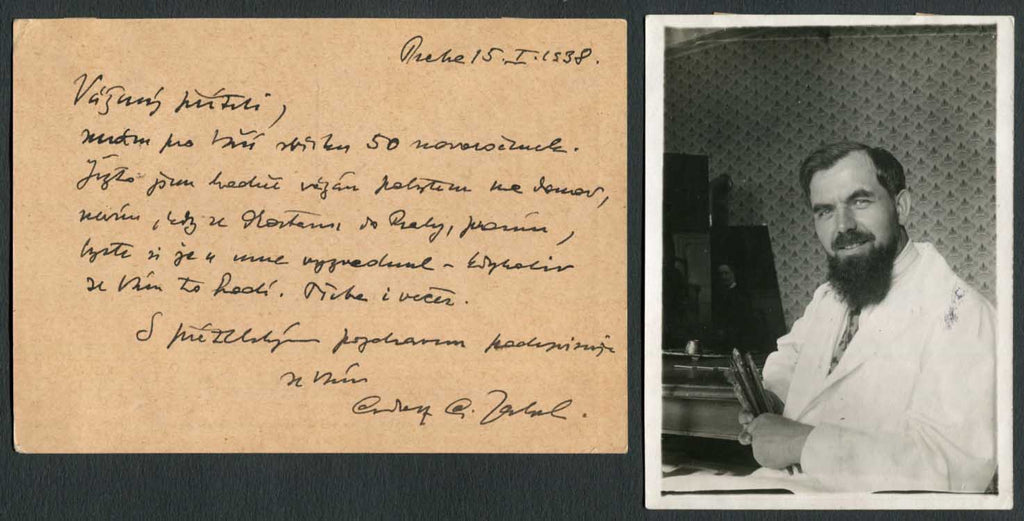 Praha 15. I. 1938.
Vážený příteli,
mám pro Vaši sbírku 50 novoročenek.
Ježto jsem hodně vázán pobytem na domov,
nevím, kdy se dostanu do Prahy, prosím,
byste si je u mne vyzvednul – kdykoliv
se Vám to hodí. Třeba i večer.
S přátelským pozdravem podepisuje
se Vám